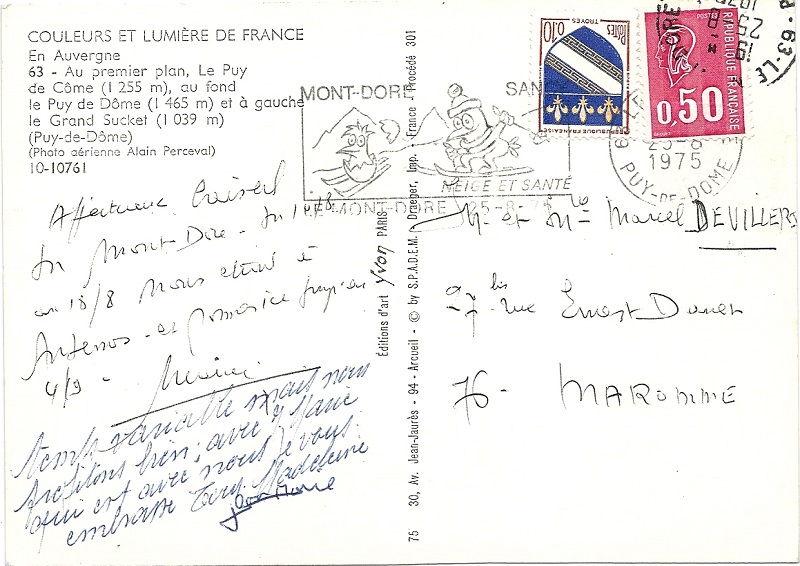 COULEURS ET LUMIÈRE DE FRANCE
En Auvergne
63 - Au premier plan, Le Puy
de Côme (1 255 m), au fond
le Puy de Dôme (1 465 m) et à gauche
le Grand Sucket (1 039 m)
(Puy-de-Dôme)
(Photo aérienne Alain Perceval)
10-10761
Affectueux
Mont-Dore
au 18/8 nous
et
4/9 -
temps variable mais nous
profitons bien, avec Marie
qui est avec nous je vous
embrasse Tous Madeleine
Editions d'art Yvon PARIS
75 30, Av. Jean-Jaurès - 94 - Arcueil - © by S.P.A.D.E.M. Draeger, Imp. - France - Procédé 301
MONT-DORE SAN
NEIGE ET SANTÉ
LE MONT-DORE 25-8-75
0.10 Postes
TROYES
REPUBLIQUE FRANÇAISE
POSTES
0,50 REPUBLIQUE FRANÇAISE
63-LE
19 H
25-8
1975
25-8
1975
PUY-DE-DOME
M. et Mme Marcel DEVILLERS
27 bis rue Ernest Danet
76 - MAROMME